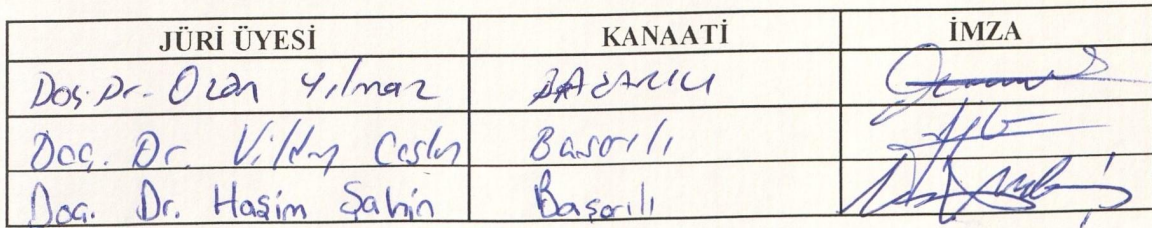 JÜRİ ÜYESİ KANAATİ İMZA
Doç. Dr. Ozan Yılmaz BAŞARILI
Doç. Dr. Başarılı
Doç. Dr. Haşim Şahin Başarılı